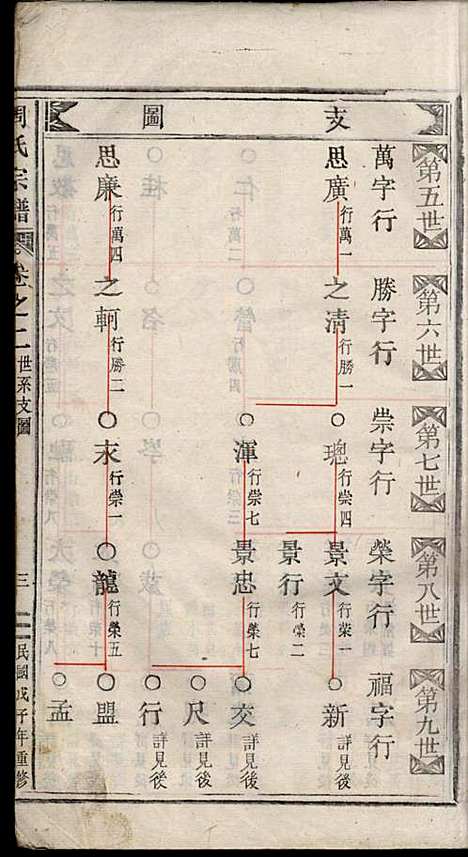 支圖
第五世
第六世
第七世
第八世
第九世
萬字行
勝字行
崇字行
榮字行
福字行
思廣 行萬一
之清 行勝一
○璁 行崇四
景文 行榮一
○新 詳見後
景行 行榮二
○渾 行崇七
景忠 行榮七
○交 詳見後
○尺 詳見後
○行 詳見後
思廉 行萬四
之軻 行勝二
○求 行崇一
○龍 行榮五
○盟
○孟
周氏宗譜
卷之二
世系支圖
三
民國戊子年重修